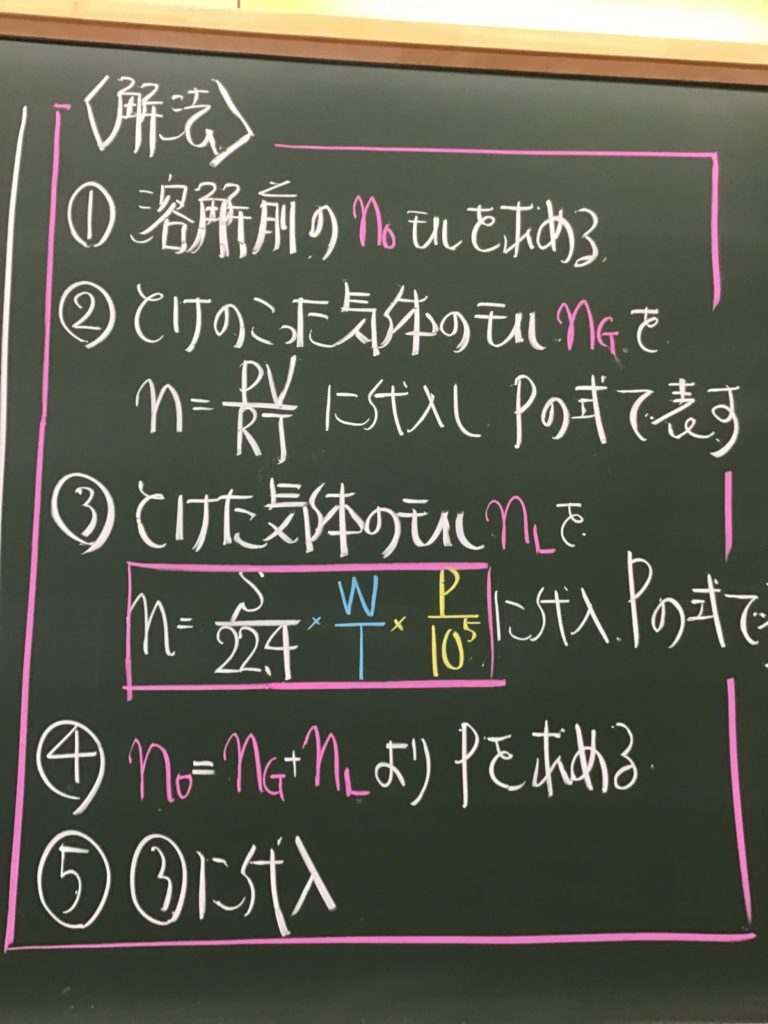 〈解法〉
① 溶解前のn₀モルを求める
② とけのこった気体のモルnGを
n=PV/RTに代入しPの式で表す
③ とけた気体のモルnLを
n=S/22.4×W/1×P/10⁵に代入.Pの式で
④ n₀=nG+nLよりPを求める.
⑤ ③に代入